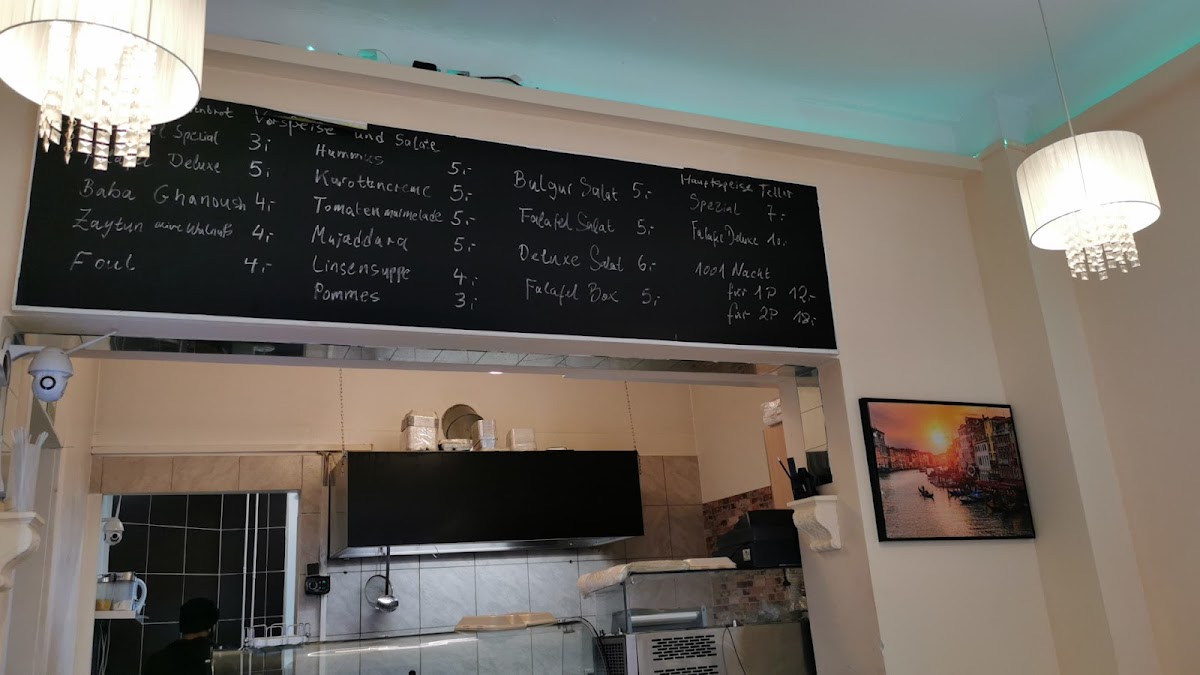 Spezial 3,-
Deluxe 5,-
Baba Ghanoush 4,-
Zaytun olive Walnuß 4,-
Foul 4,-
Vorspeise und Salate
Hummus 5,-
Karottencreme 5,-
Tomatenmarmelade 5,-
Mujaddara 5,-
Linsensuppe 4,-
Pommes 3,-
Bulgur Salat 5,-
Falafel Salat 5,-
Deluxe Salat 6,-
Falafel Box 5,-
Hauptspeise Teller
Spezial 7,-
Falafel Deluxe 10,-
1001 Nacht
für 1P 12,-
für 2P 18,-